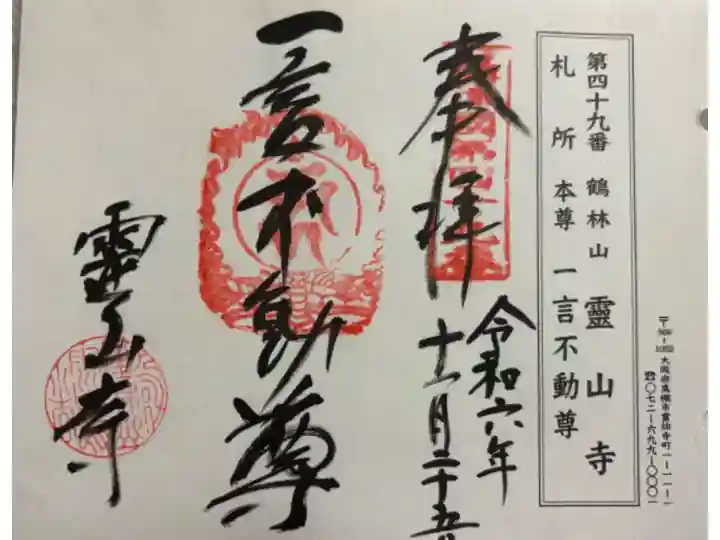 大阪府高槻市霊仙寺町一ー一一ー一
☎〇七二ー六九九ー〇〇〇一
第四十九番 鶴林山 靈山寺
札所 本尊 一言不動尊
令和六年
十一月二十五
奉拝
一言不動尊
靈山寺